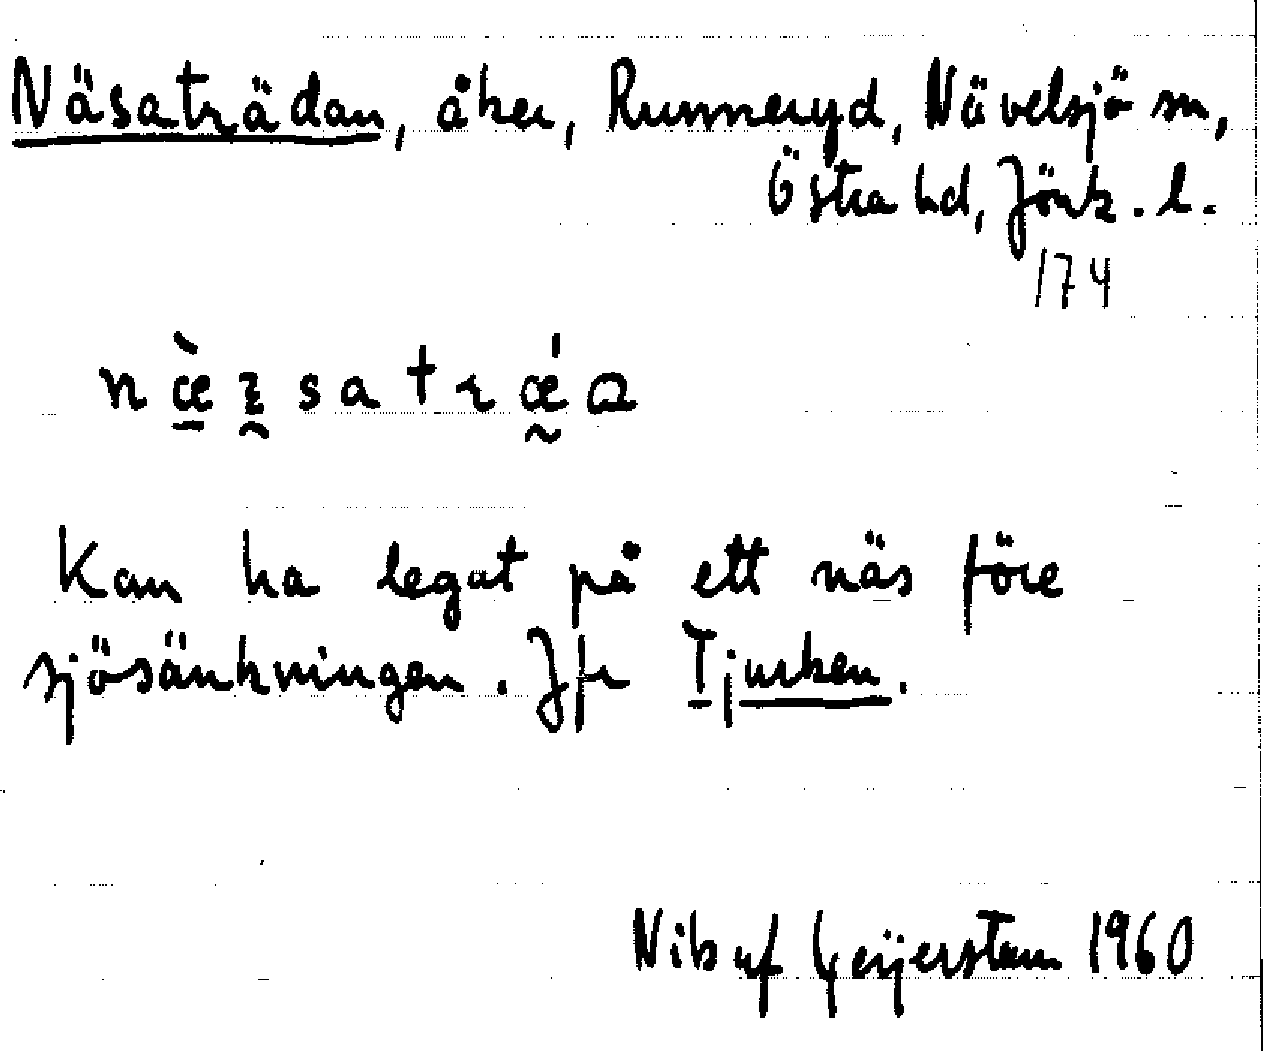 Näsaträdan, åker, Runneryd, Nävelsjö sn,
Östra hd, Jönk. l.
174
Kan ha legat på ett näs före
sjösänkningen. Jfr Tjurken.
Nils af Geijerstam 1960